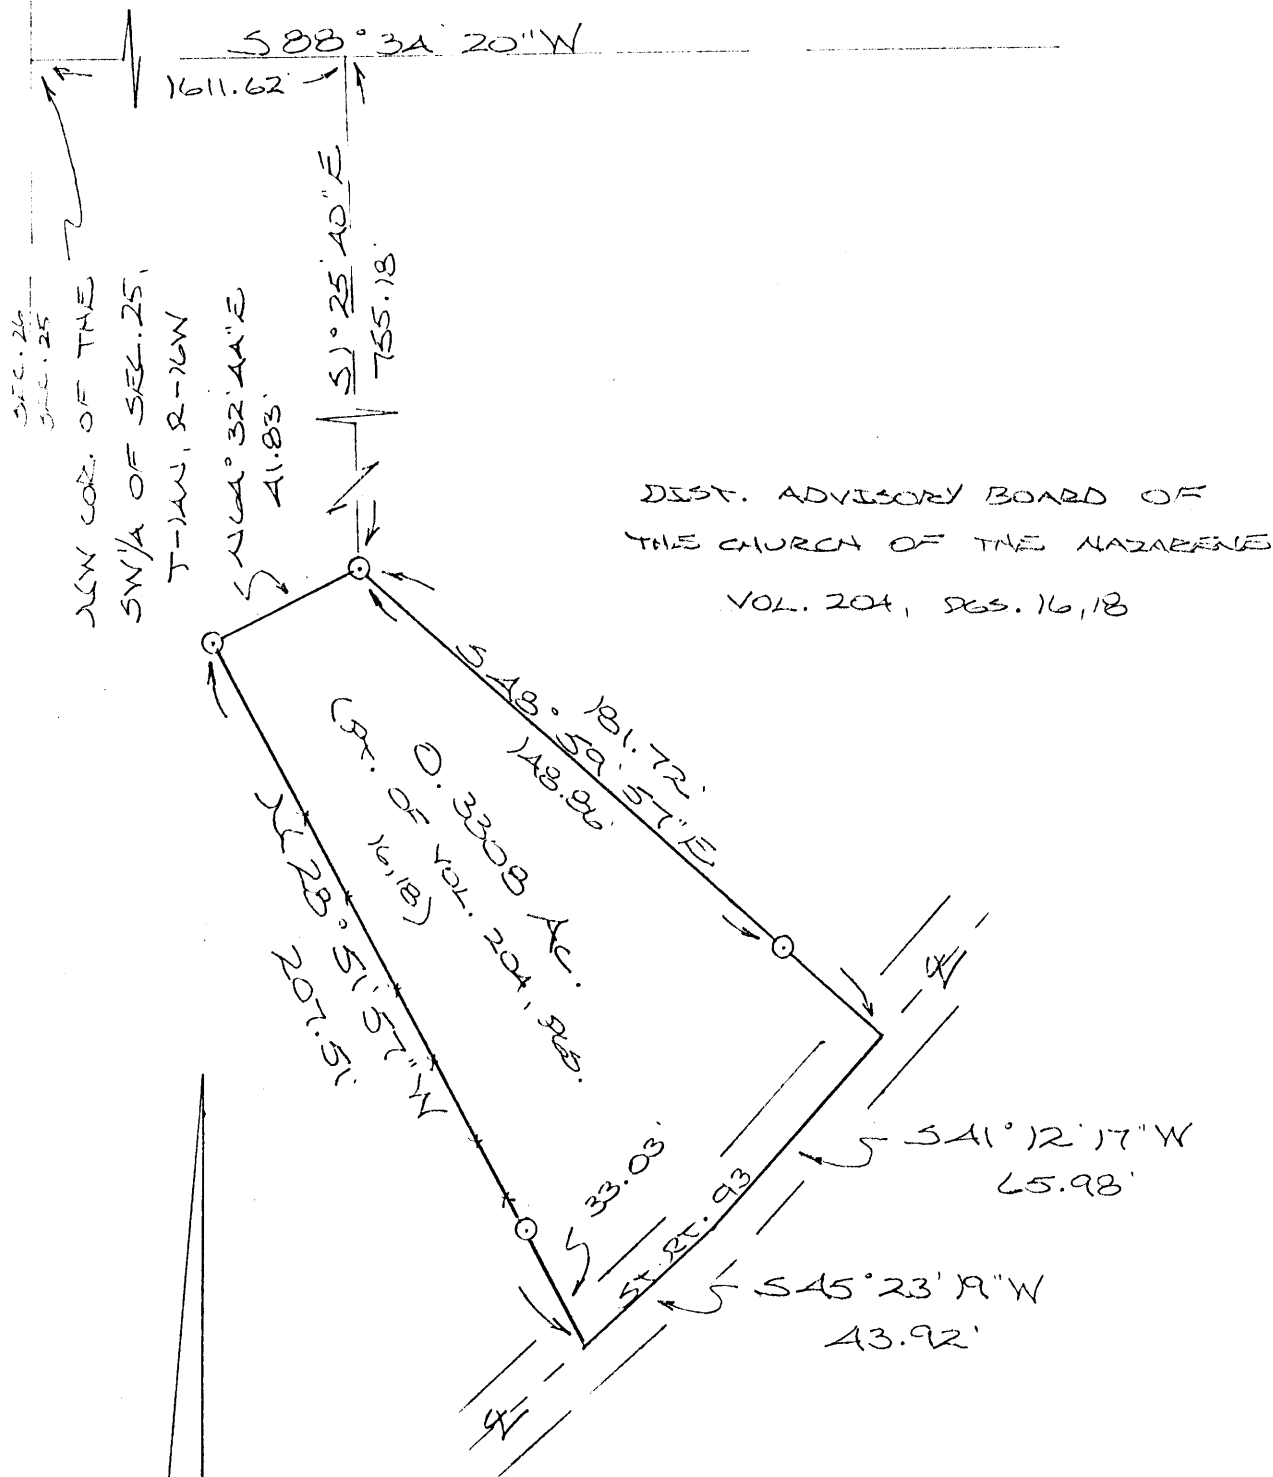 S 88° 34' 20" W
1611.62'
S 1° 25' 40" E
755.18'
SEC. 26
SEC. 25
NW COR. OF THE
SW 1/4 OF SEC. 25,
T-14N, R-16W
N 64° 32' 44" E
41.83'
DIST. ADVISORY BOARD OF
THE CHURCH OF THE NAZARENE
VOL. 204, PGS. 16,18
181.72'
S 48° 59' 57" E
148.86'
0.3308 Ac.
(PT. OF VOL. 204, PGS.
16,18)
N 28° 51' 57" W
207.51'
33.03'
ST. RT. 93
S 41° 12' 17" W
65.98'
S 45° 23' 19" W
43.92'